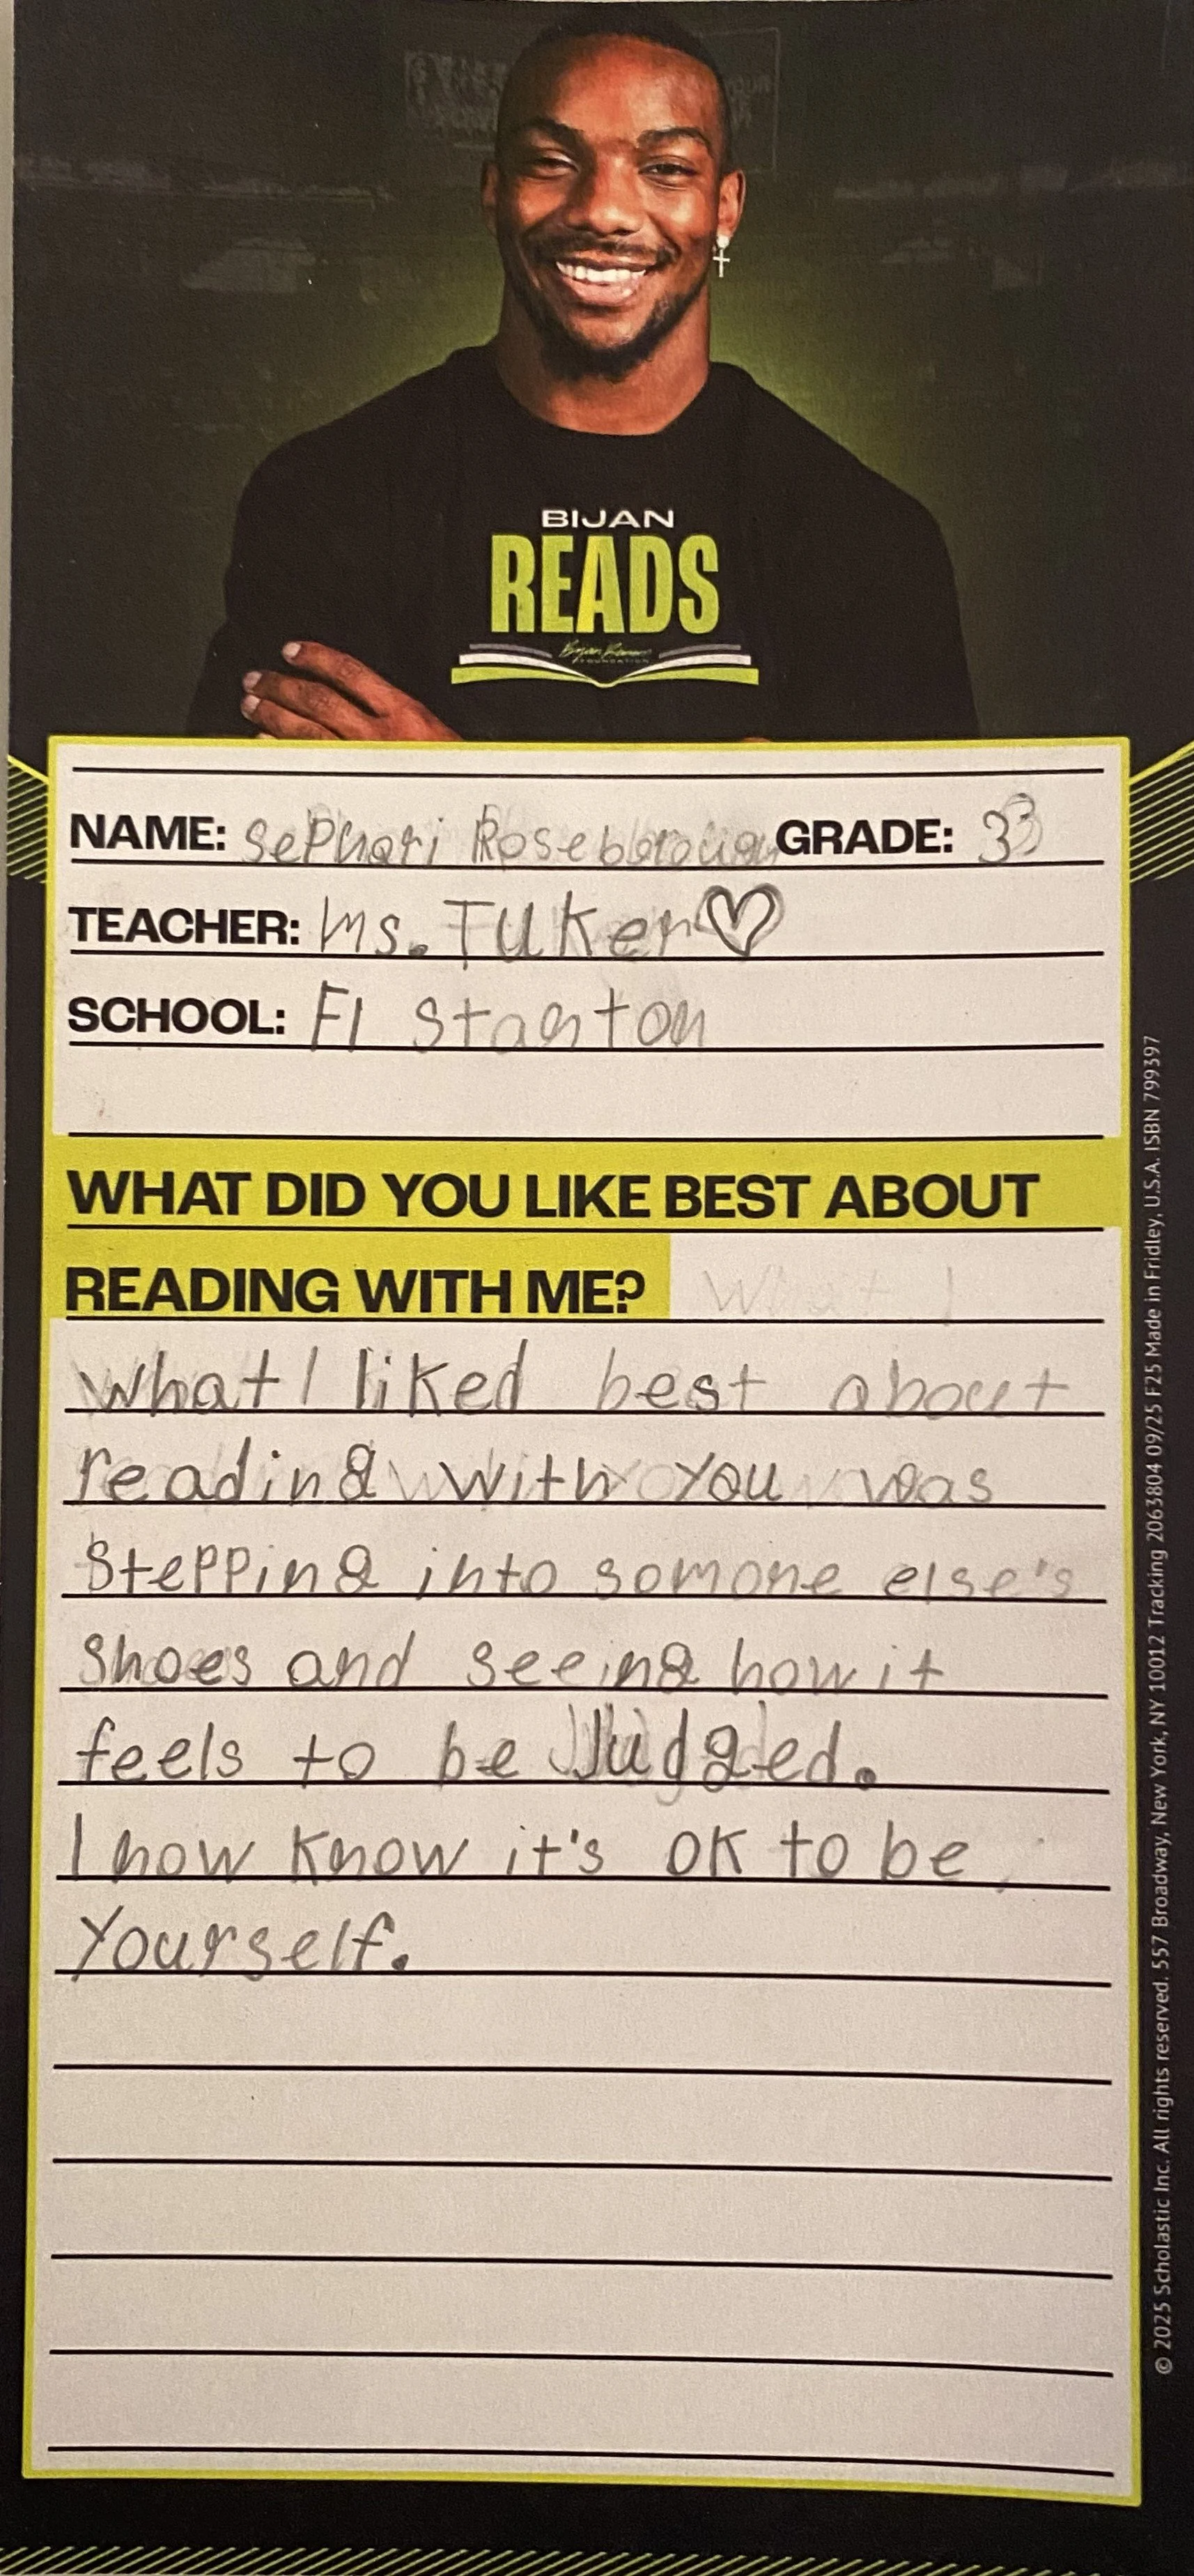 BIJAN
READS
Bijan Robinson
FOUNDATION
NAME: SePhari Roseborough GRADE: 3
TEACHER: Ms. TUKer
SCHOOL: Fl Stanton
WHAT DID YOU LIKE BEST ABOUT
READING WITH ME? What I
what I liked best about
reading with you was
Stepping into somone else's
Shoes and seeing how it
feels to be Judged.
I now know it's OK to be
Yourself.
© 2025 Scholastic Inc. All rights reserved. 557 Broadway, New York, NY 10012 Tracking 2063804 09/25 F25 Made in Fridley, U.S.A. ISBN 799397